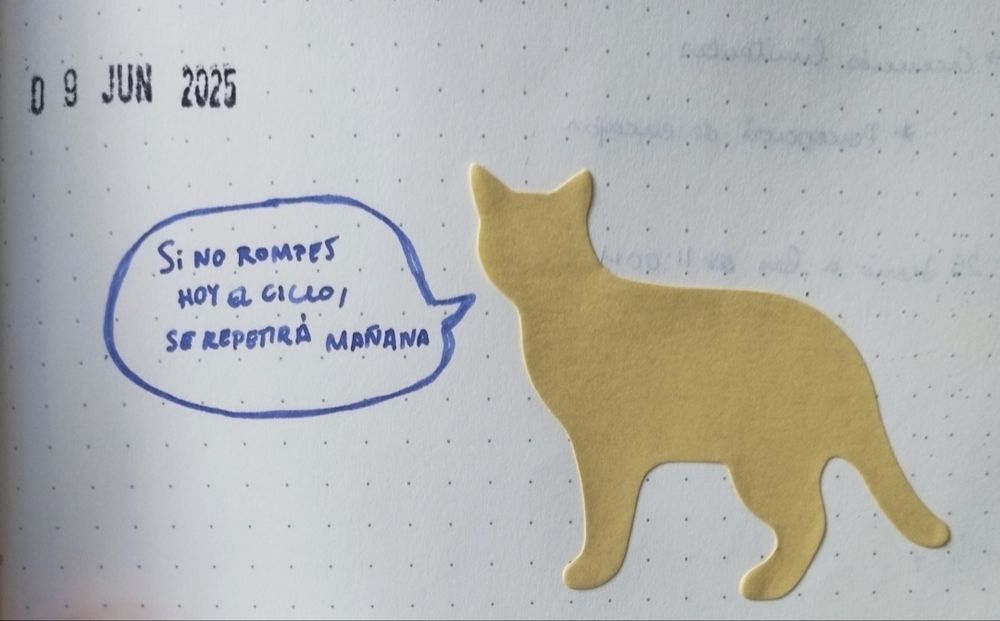 09 JUN 2025
Si NO ROMPES
HOY EL CICLO,
SE REPETIRÁ MAÑANA